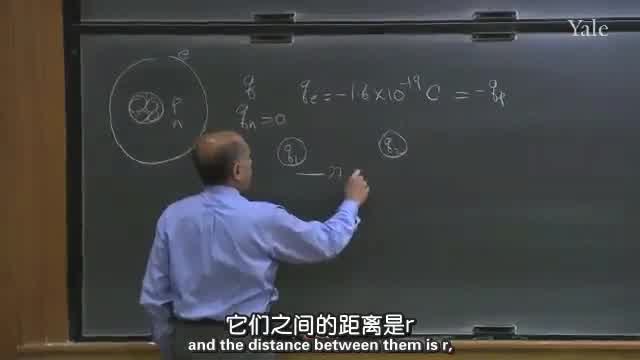 Yale
e
q
q_e = -1.6 × 10^-19 C = -q_p
P
n
q_n = 0
q_1
q_2
r
它们之间的距离是r
and the distance between them is r,